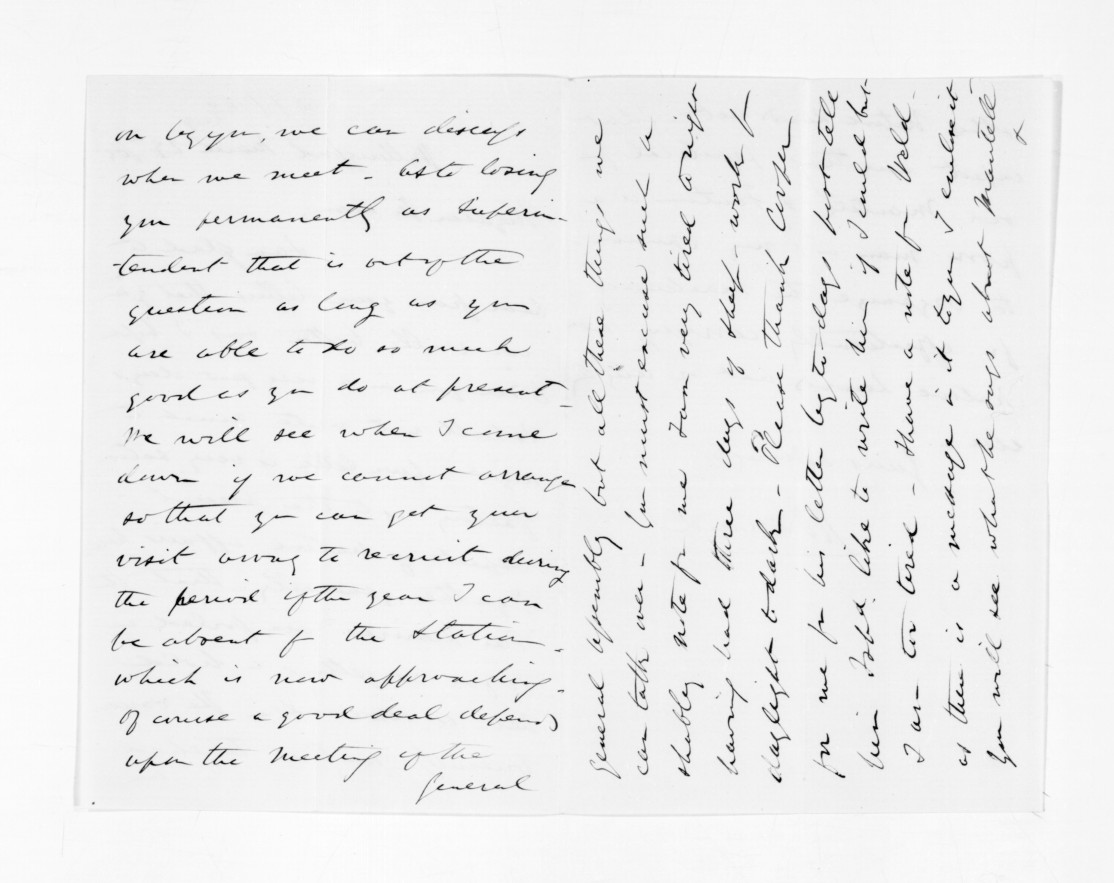 on by you, we can discuss
when we meet - As to losing
you permanently as Superin-
-tendent that is out of the
question as long as you
are able to do so much
good as you do at present -
We will see when I come
down if we cannot arrange
so that you can get your
visit away to recruit during
the period of the year I can
be absent fr the Station -
which is now approaching -
Of course a good deal depends
upon the meeting of the
General
General Assembly but all these things we
can talk over - You must excuse such a
shabby note fr me I am very tired tonight
having had three days of sheep - work fr
daylight to dark - Please thank Cooper
for me for his letter by to-days post tell
him I shd. like to write him if I could but
I am too tired - I have a note fr Weld -
as there is a message in it to you I enclose it
You will see what he says about Mantell